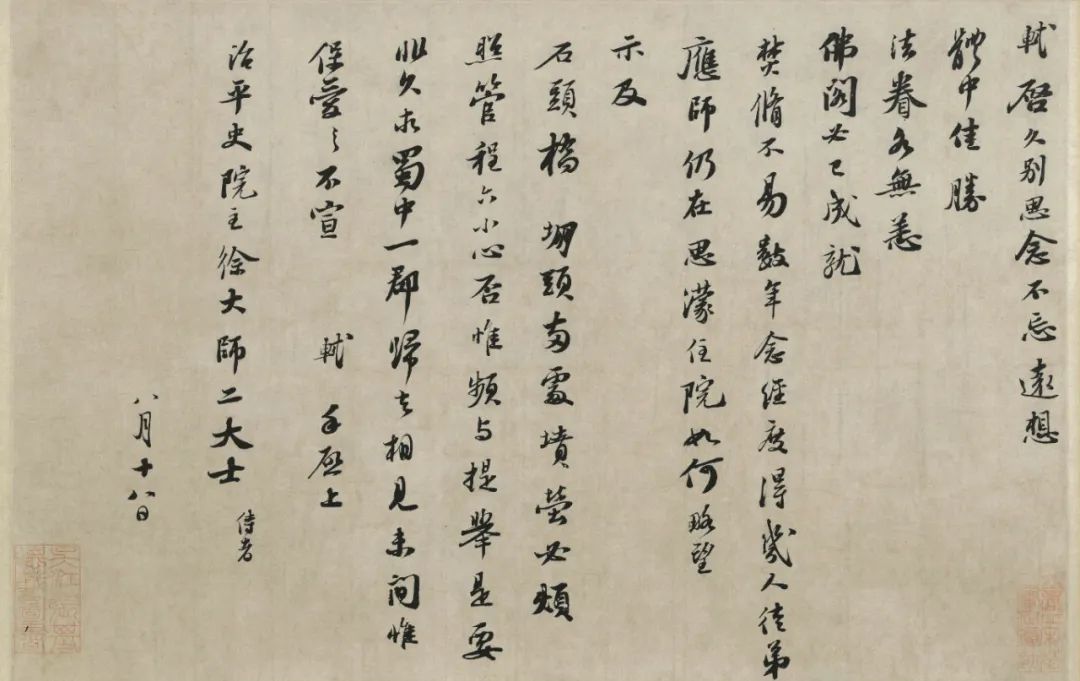 軾啓久别思念不忘遠想
體中佳勝
法眷各無恙
佛閣必已成就
焚脩不易數年念經度得幾人徒弟
應師仍在思濛住院如何略望
示及
石頭橋 堋頭兩處墳塋必煩
照管程六小心否惟頻與提舉是要
非久求蜀中一郡歸去相見未間惟
保愛之不宣 軾 手啓上
治平史院主徐大師二大士 侍者
八月十八日